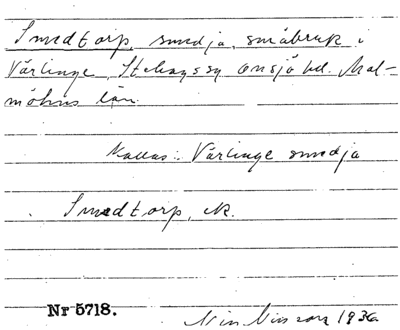 Smedtorp, smedja, småbruk i
Värlinge, Stehags sn Onsjö hd. Mal-
möhus län.
Kallas: Värlinge smedja
Smedtorp, ek.
Nr 5718.
Nilsson 1936